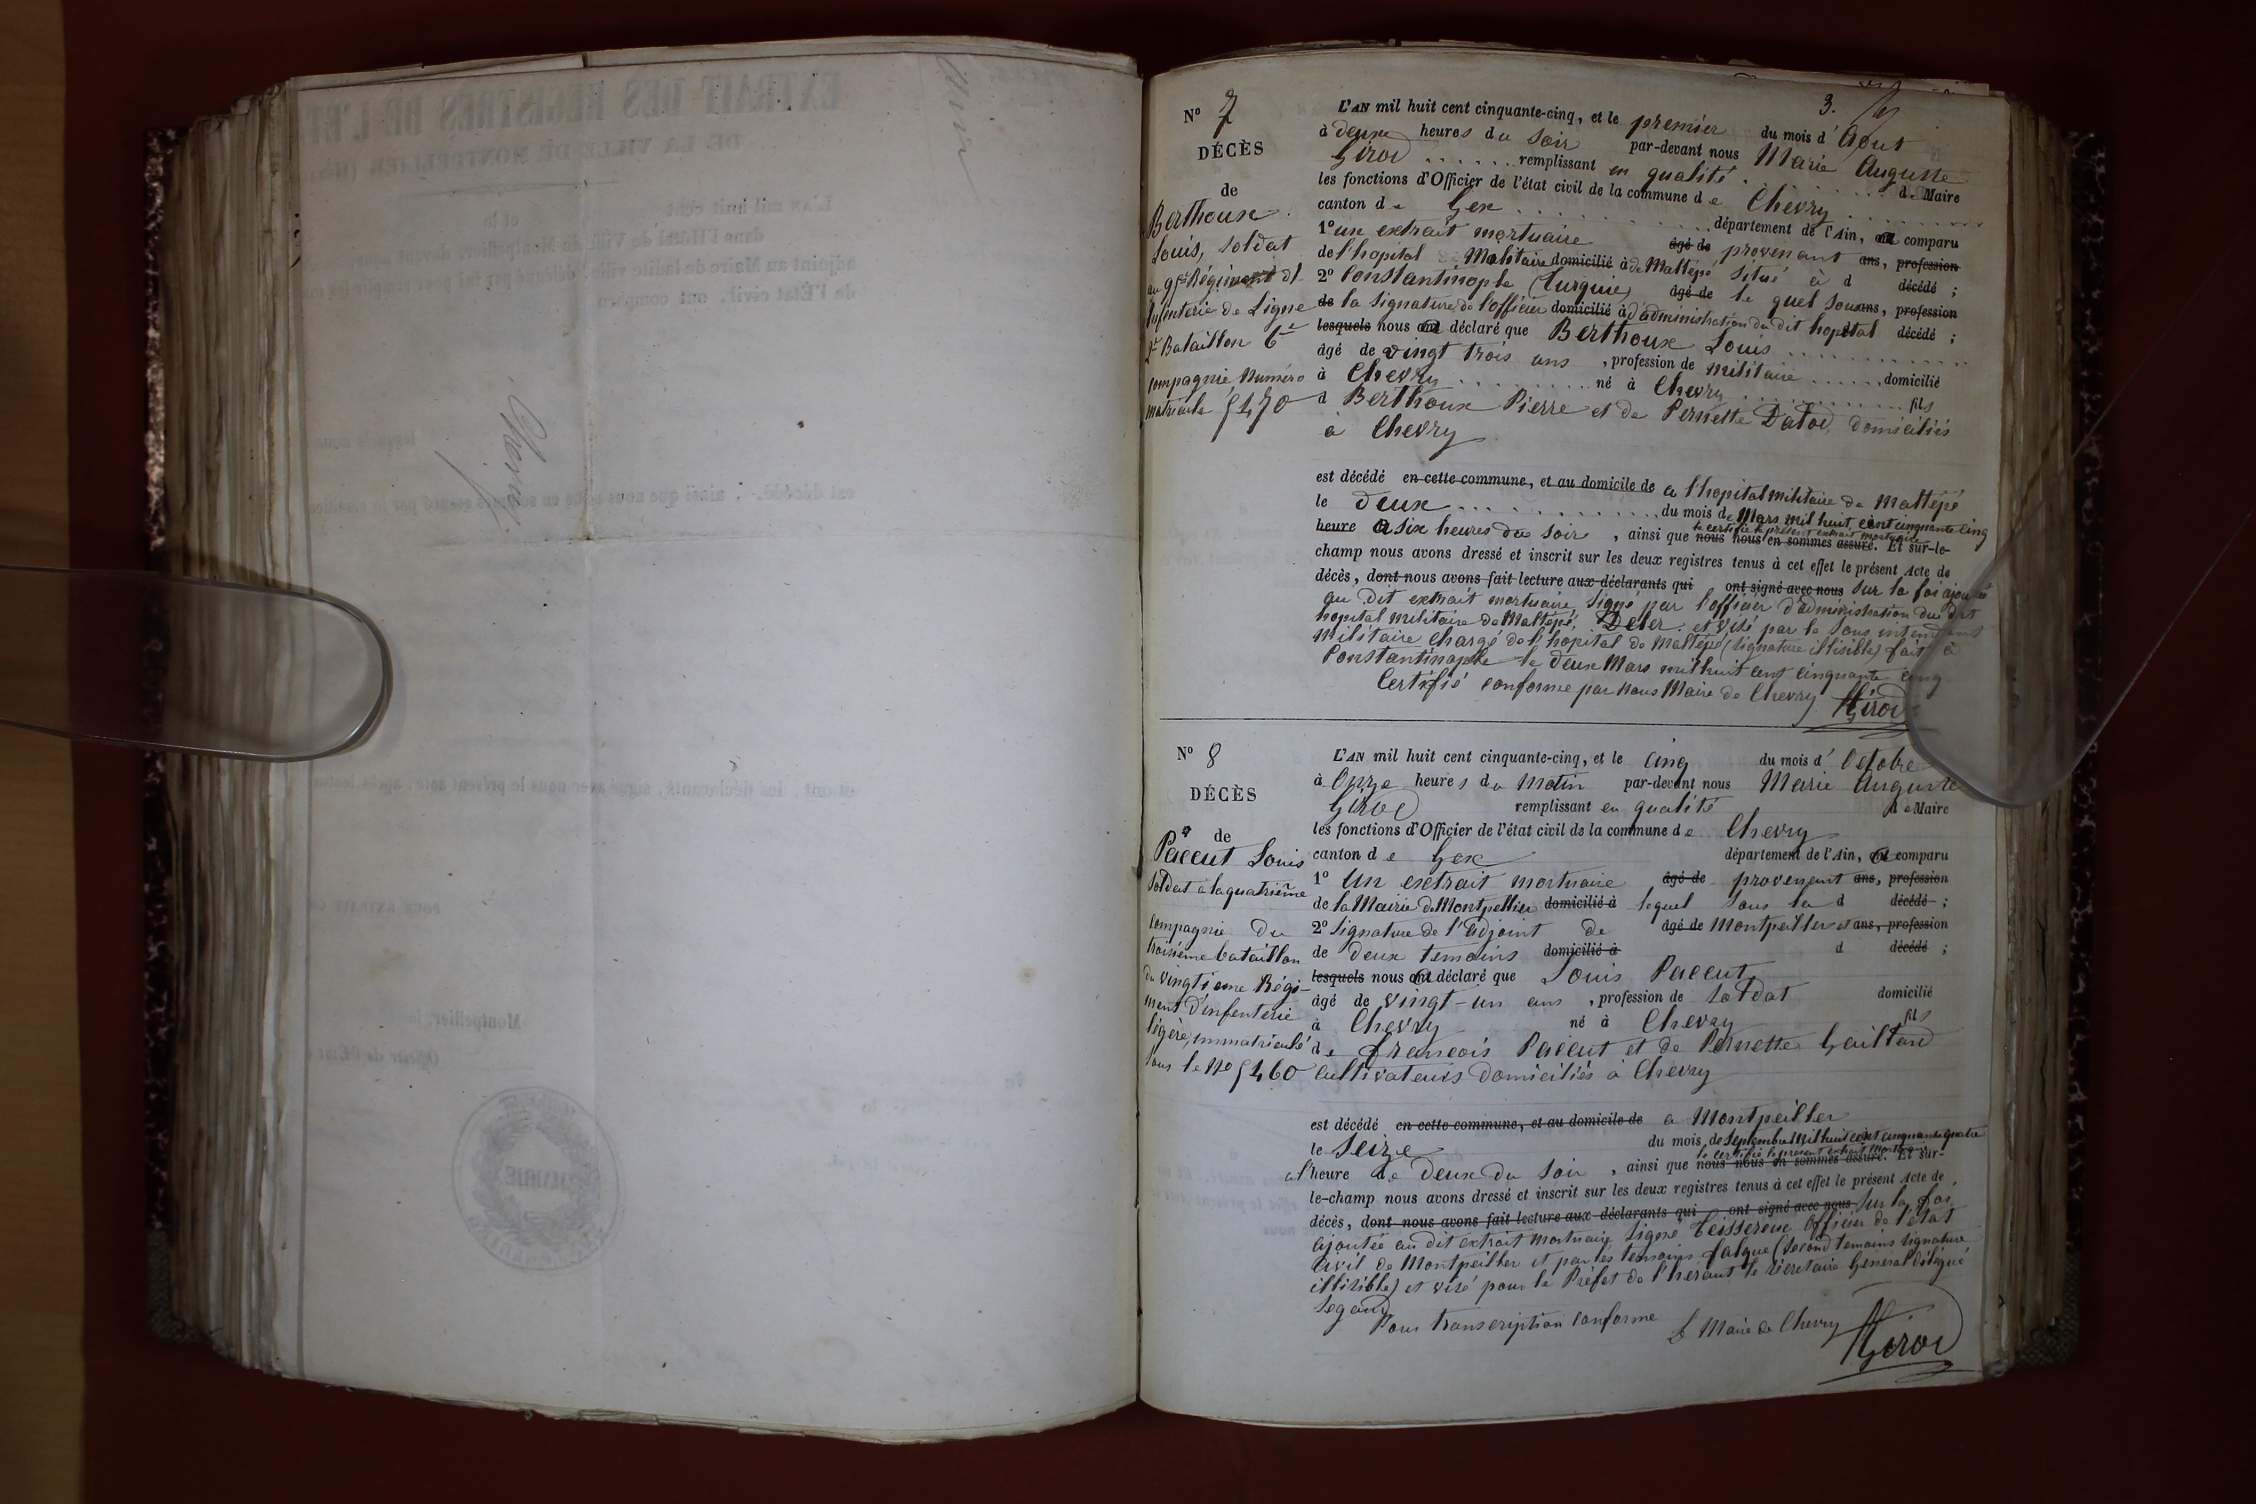 Chevry
3.
N° 7
DÉCÈS
de
Berthoux
Louis, soldat
au 9e Régiment d'
Infenterie de Ligne
2e Bataillon 6e
compagnie Numéro
matricule 5470
L'AN mil huit cent cinquante-cinq, et le premier du mois d' Aout
à deux heures du soir par-devant nous Marie Auguste
Girod remplissant en qualité de Maire
les fonctions d'Officier de l'état civil de la commune de Chevry
canton de Gex département de l'Ain, a comparu
1° un extrait mortuaire âgé de provenant ans, profession
de l'hopital Militaire domicilié à de Maltépé situé à d décédé ;
2° Constantinople (Turquie) âgé de le quel sous ans, profession
de la signature de l'officier domicilié à d'administration du dit hopital décédé ;
lesquels nous a déclaré que Berthoux Louis
âgé de vingt trois ans , profession de militaire domicilié
à Chevry né à Chevry fils
d Berthoux Pierre et de Pernette Datod domiciliés
à Chevry
est décédé en cette commune, et au domicile de a l'hopital militaire de Maltépé
le deux du mois de Mars mil huit cent cinquante cinq
le certifie le présent extrait mortuaire
heure a six heures du soir , ainsi que nous nous en sommes assuré. Et sur-le-
champ nous avons dressé et inscrit sur les deux registres tenus à cet effet le présent Acte de
décès, dont nous avons fait lecture aux déclarants qui ont signé avec nous sur la foi ajoutée
au dit extrait mortuaire signé par l'officier d'administration du dit
hopital militaire de Maltépé, et visé par le sous intendant
militaire chargé de l'hopital de Maltépé (signature illisible) fait à
Constantinople le deux Mars mil huit cent cinquante cinq
Certifié conforme par nous Maire de Chevry Girod
N° 8
DÉCÈS
de
Paccut Louis
soldat a la quatrième
compagnie du
troisième bataillon
du vingtième Régi-
ment d'infenterie
légère, immatriculé
sous le No 5460
L'AN mil huit cent cinquante-cinq, et le cinq du mois d' Octobre
à Onze heures du matin par-devant nous Marie Auguste
Girod remplissant en qualité de Maire
les fonctions d'Officier de l'état civil de la commune de Chevry
canton de Gex département de l'Ain, a comparu
1° Un extrait mortuaire âgé de provenant ans, profession
de la Mairie de Montpellier domicilié à lequel sous la d décédé ;
2° signature de l'adjoint de âgé de Montpeiller et ans, profession
de deux temoins domicilié à d décédé ;
lesquels nous a déclaré que Louis Paccut
âgé de vingt-un ans , profession de soldat domicilié
à Chevry né à Chevry fils
de francois Paccut et de Pernette Gaillard
cultivateurs domiciliés à Chevry
est décédé en cette commune, et au domicile de a Montpeiller
le Seize du mois de Septembre Mil huit cent cinquante quatre
le certifie le présent extrait Mortuaire
a l'heure de deux du soir , ainsi que nous nous en sommes assuré. Et sur-
le-champ nous avons dressé et inscrit sur les deux registres tenus à cet effet le présent Acte de
décès, dont nous avons fait lecture aux déclarants qui ont signé avec nous sur la foi
ajoutée au dit extrait mortuaire signé Teisserenc officier de l'état
civil de Montpeiller et par les temoins falque (second temoins signature
illisible) et visé pour le Préfet de l'hérault le sécretaire General délégué
Segaud
Pour transcription conforme Le Maire de Chevry Girod